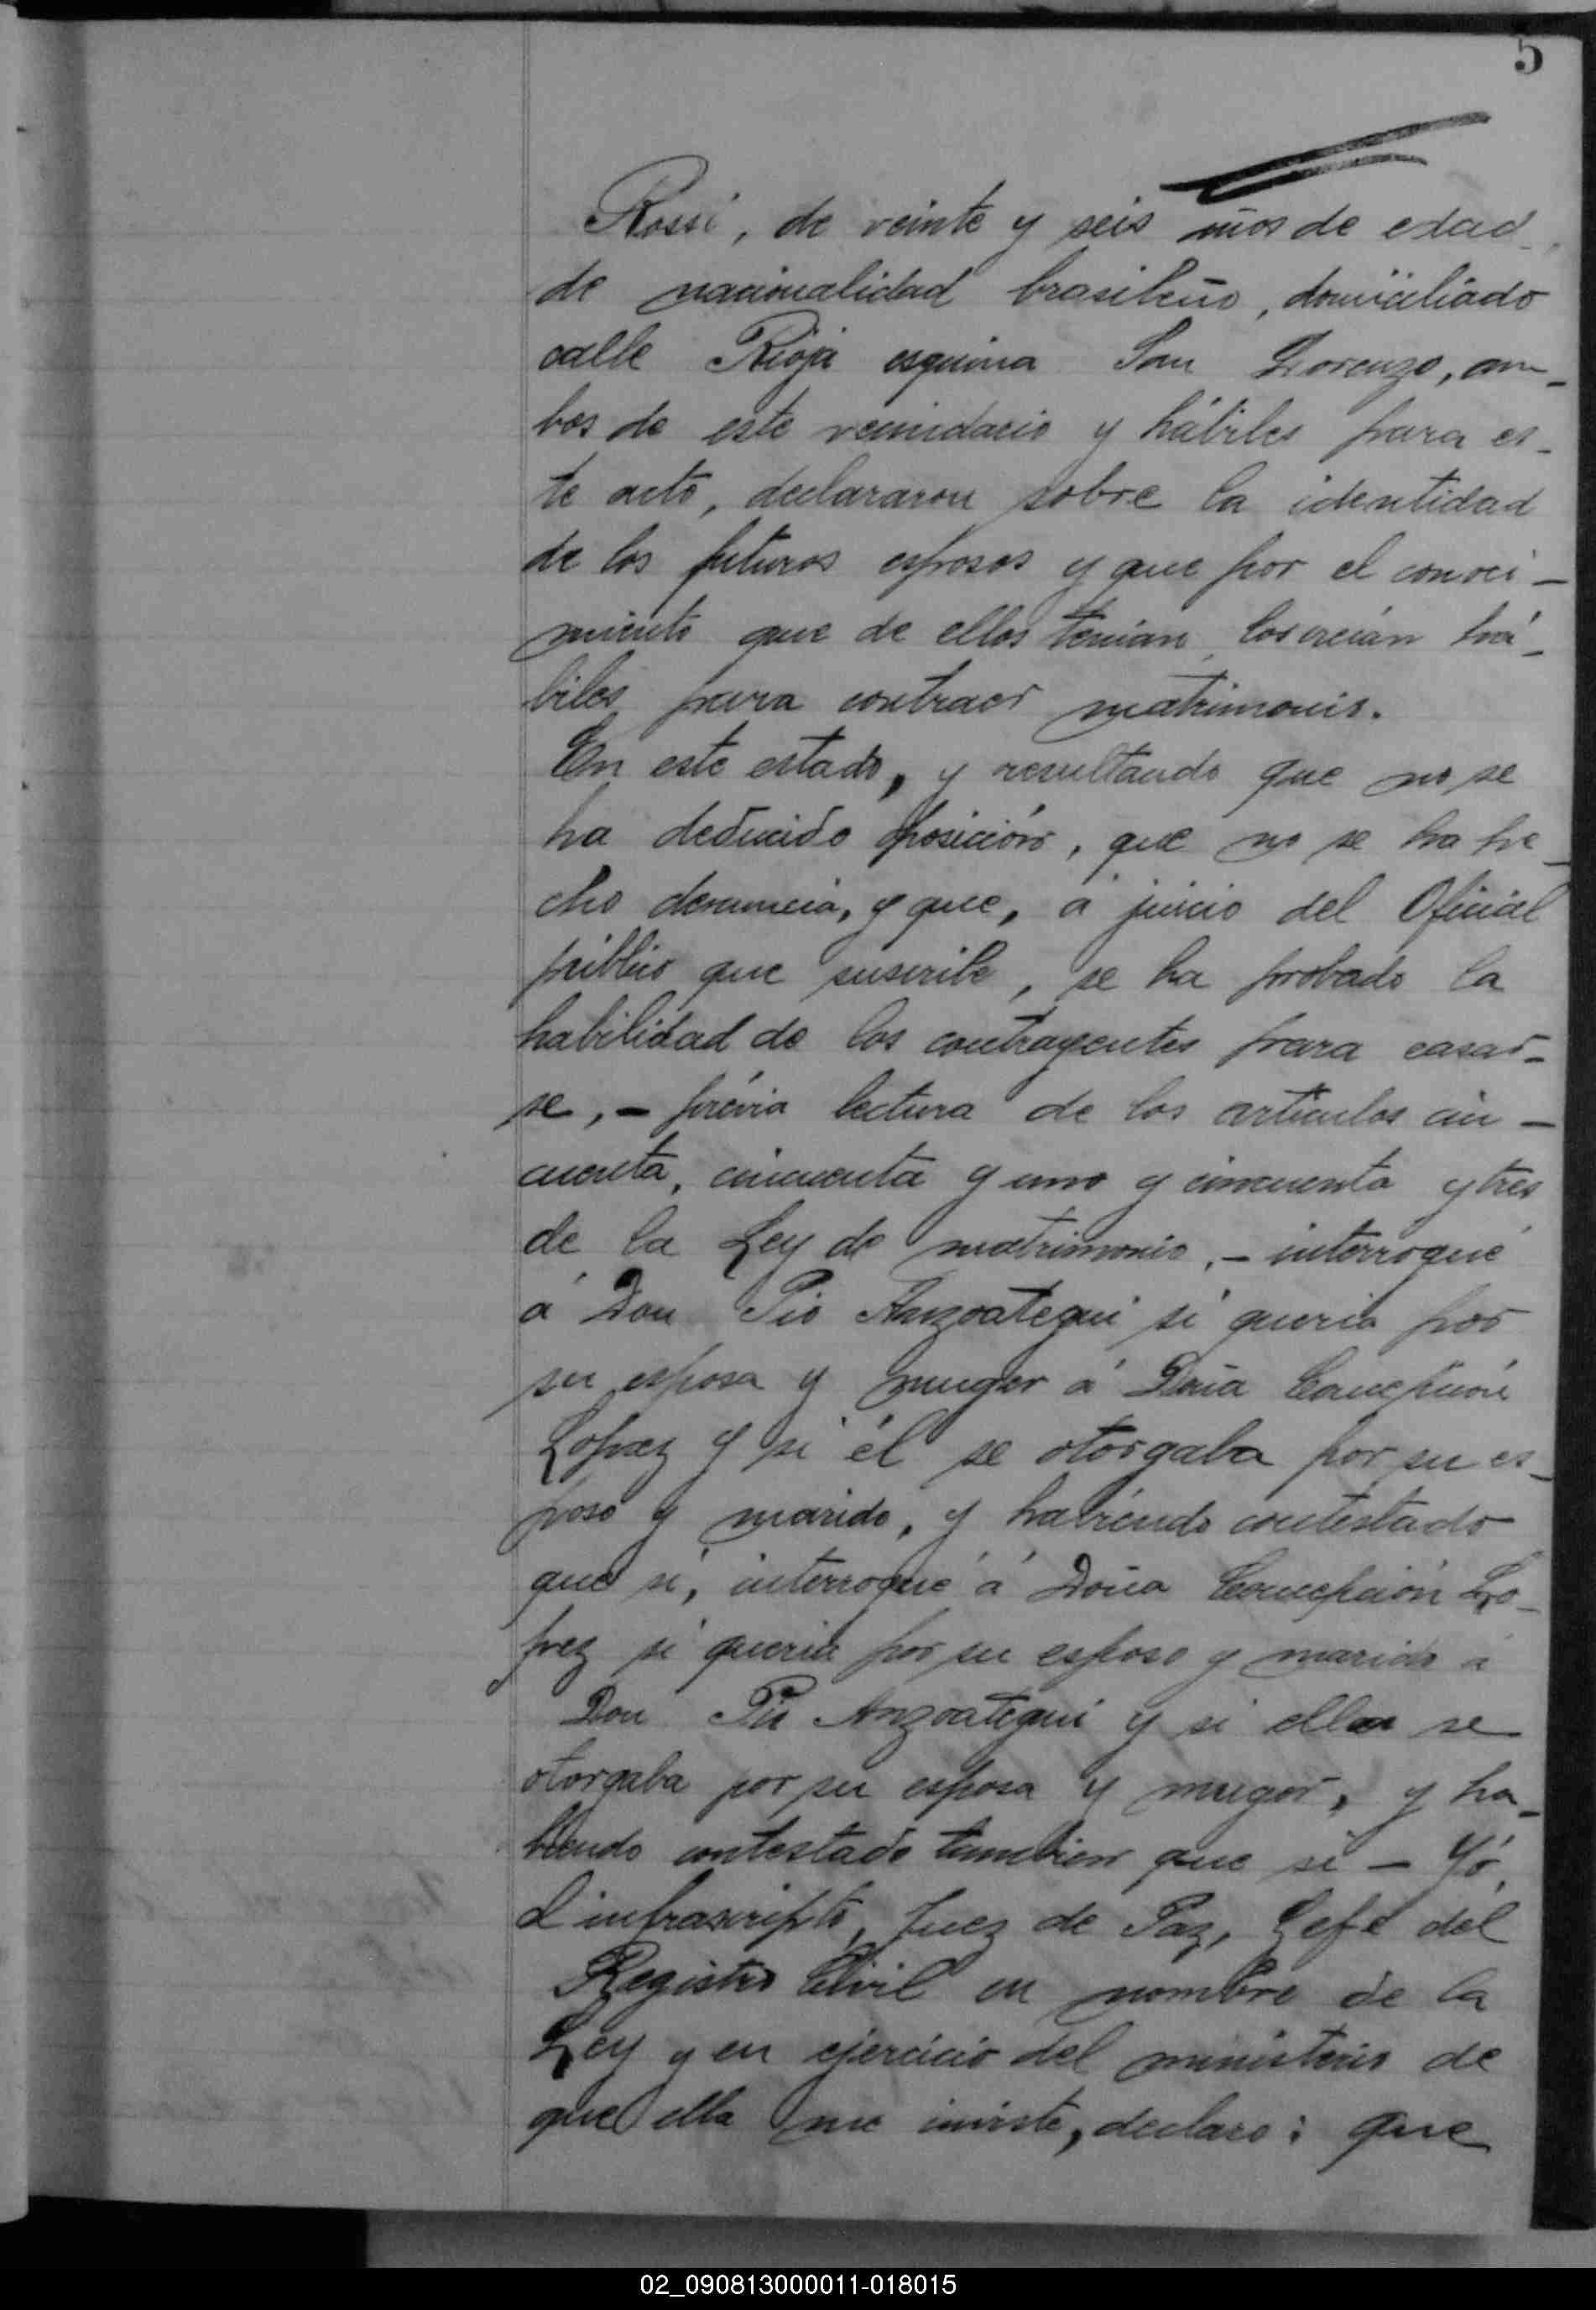 5
Rossi, de veinte y seis años de edad,
de nacionalidad brasileño, domiciliado
calle Rioja esquina San Lorenzo, am_
bos de este vecindario y hábiles para es_
te acto, declararon sobre la identidad
de los futuros esposos y que por el conoci_
miento que de ellos tenian, los creian há_
biles para contraer matrimonio.
En este estado, y resultando que no se
ha deducido oposición, que no se ha he_
cho denuncia, y que, á juicio del Oficial
público que suscribe, se ha probado la
habilidad de los contrayentes para casar_
se, - prévia lectura de los articulos cin_
cuenta, cincuenta y uno y cincuenta y tres
de la Ley de matrimonio, - interrogué
á Don Pio Anzoategui si queria por
su esposa y muger á Doña Concepción
Lopez y si él se otorgaba por su es_
poso y marido, y habiendo contestado
que si, interrogué á Doña Concepción Lo_
pez si queria por su esposo y marido á
Don Pio Anzoategui y si ella se
otorgaba por su esposa y muger, y ha_
biendo contestado tambien que si - Yó,
el infrascripto, Juez de Paz, Gefe del
Registro Civil en nombre de la
Ley y en ejercicio del ministerio de
que ella me inviste, declaro: que
02_090813000011-018015